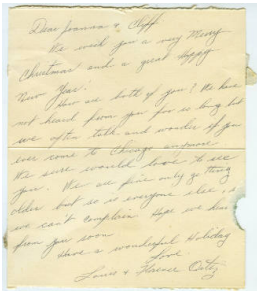 Dear Joanna & Cliff.
We wish you a very Merry
Christmas and a great Happy
New Year.
How are both of you? We have
not heard from you for so long but
we often talk and wonder if you
ever come to Chicago anymore
We sure would love to see
you. We are fine only getting
older but so is everyone else so
we can't complain Hope we hear
from you soon
Have a wonderful Holiday
Love.
Louis & Florence Ortiz